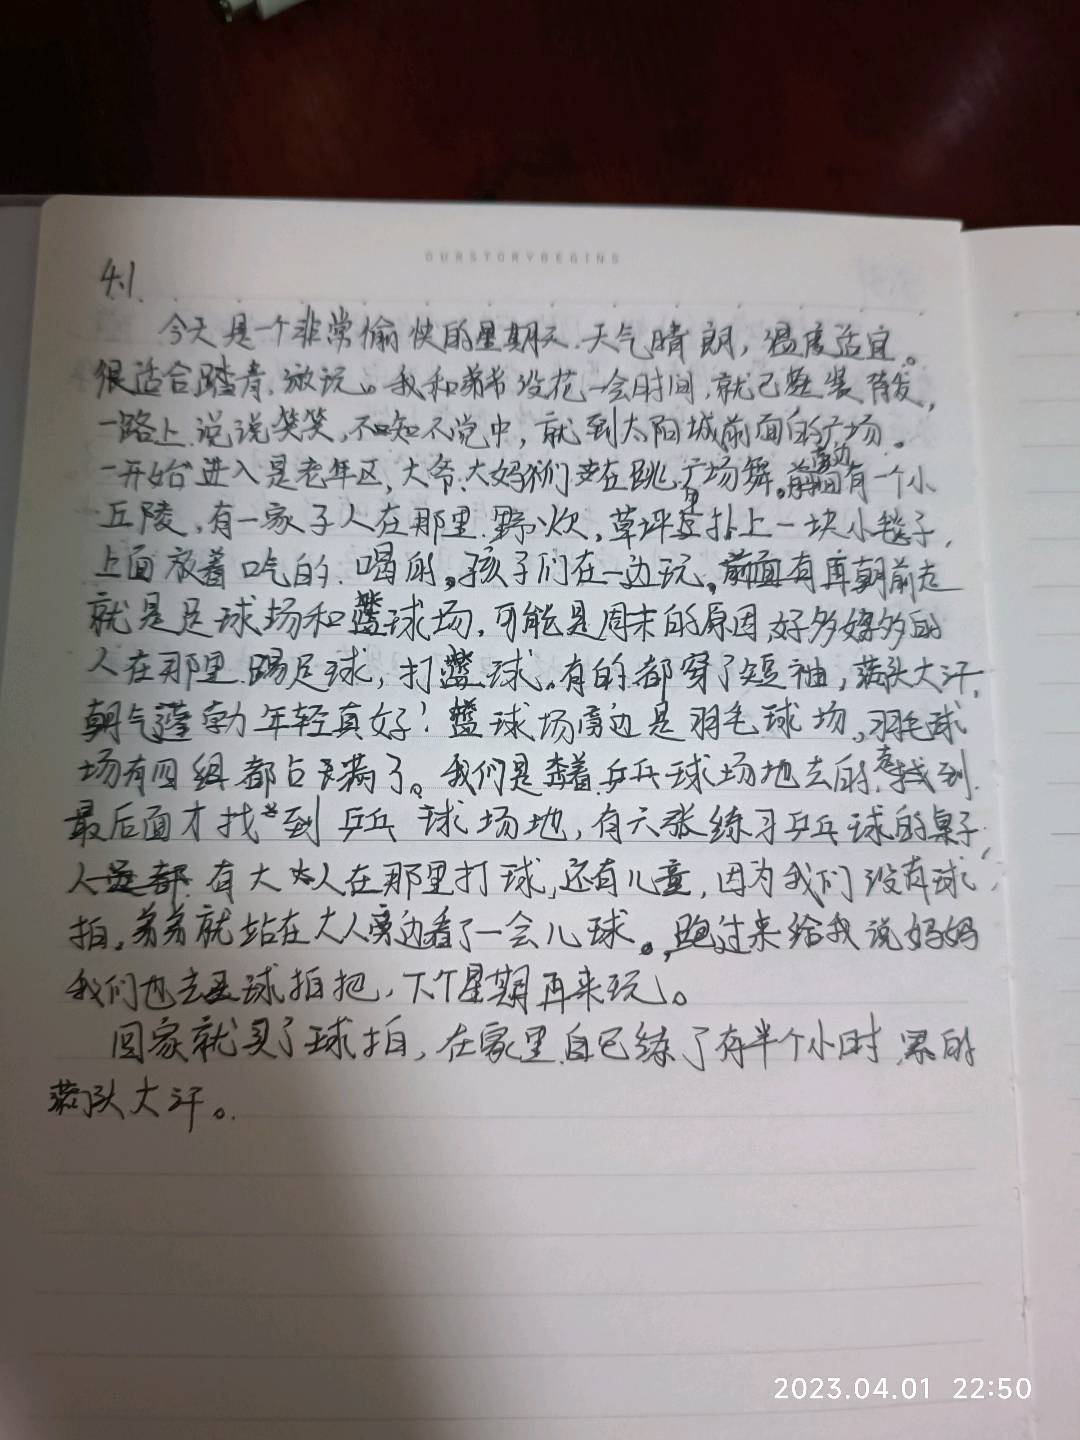 OURSTORYBEGINS
4.1
今天是一个非常愉快的星期天.天气晴朗,温度适宜。
很适合踏青.游玩。我和弟弟没花一会时间,就已整装待发,
一路上说说笑笑,不知不觉中,就到太阳城前面的广场。
一开始进入是老年区,大爷大妈们都在跳广场舞。旁边有一个小
丘陵,有一家子人在那里野炊,草坪上扑上一块小毯子,
上面放着吃的.喝的。孩子们在一边玩。再朝前走
就是足球场和篮球场,可能是周末的原因,好多好多的
人在那里踢足球,打篮球。有的都穿了短袖,满头大汗,
朝气蓬勃年轻真好!篮球场旁边是羽毛球场,羽毛球
场有四组都占满了。我们是奔着乒乓球场地去的,找到
最后面才找到乒乓球场地,有六张练习乒乓球的桌子,
有大人在那里打球,还有儿童,因为我们没有球
拍,弟弟就站在大人旁边看了一会儿球。跑过来给我说妈妈
我们也去买球拍把,下个星期再来玩。
回家就买了球拍,在家里自已练了有半个小时,累的
满头大汗。
2023.04.01 22:50